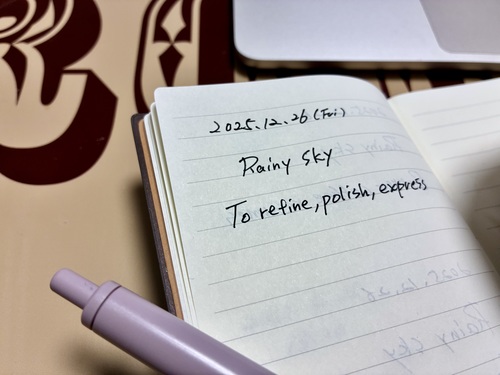 2025.12.26 (Fri)
Rainy sky
To refine, polish, express